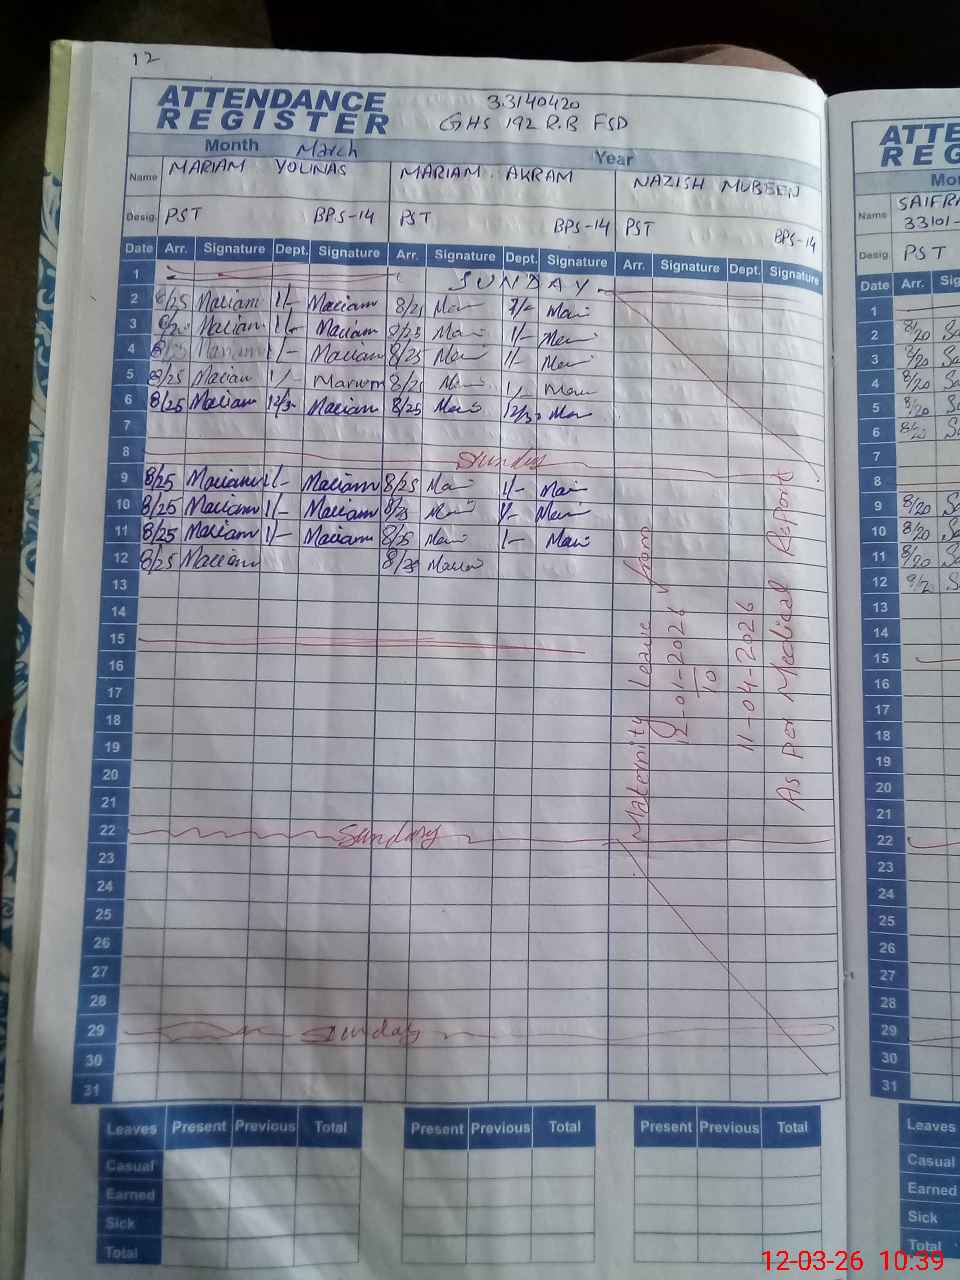 12
ATTENDANCE
REGISTER
33140420
GHS 192 R.B FSD
Month March Year
Name MARIAM YOUNAS MARIAM. AKRAM NAZISH MUBEEN
Desig. PST BPS-14 PST BPS-14 PST BPS-14
Date Arr. Signature Dept. Signature Arr. Signature Dept. Signature Arr. Signature Dept. Signature
1 SUNDAY
2 8/25 Mariam 1/- Mariam 8/25
3 Mariam 1/- Mariam 8/25 1/-
4 Mariam 1/- Mariam 8/25 1/-
5 8/25 Mariam 1/- Mariam 8/25 1/-
6 8/25 Mariam 12/30 Mariam 8/25 12/30
7
8 Sunday
9 8/25 Mariam 1/- Mariam 8/25 1/-
10 8/25 Mariam 1/- Mariam 8/25 1/-
11 8/25 Mariam 1/- Mariam 8/25 1/-
12 8/25 Mariam 8/25
13
14
15
16
17
18
19
20
21
22 Sunday
23
24
25
26
27
28
29 Sunday
30
31
Maternity Leave from
12-01-2026
TO
11-04-2026
As per Medical Report
Leaves Present Previous Total Present Previous Total Present Previous Total
Casual
Earned
Sick
Total
ATTE
REG
Mo
Name SAIFRA
33101-
Desig. PST
Date Arr. Sig
1
2 8/20 Sa
3 8/20 Sa
4 8/20 Sa
5 8/20 Sa
6 8/20 Sa
7
8
9 8/20 Sa
10 8/20 Sa
11 8/20 Sa
12 Sa
13
14
15
16
17
18
19
20
21
22
23
24
25
26
27
28
29
30
31
Leaves
Casual
Earned
Sick
Total
12-03-26 10:39